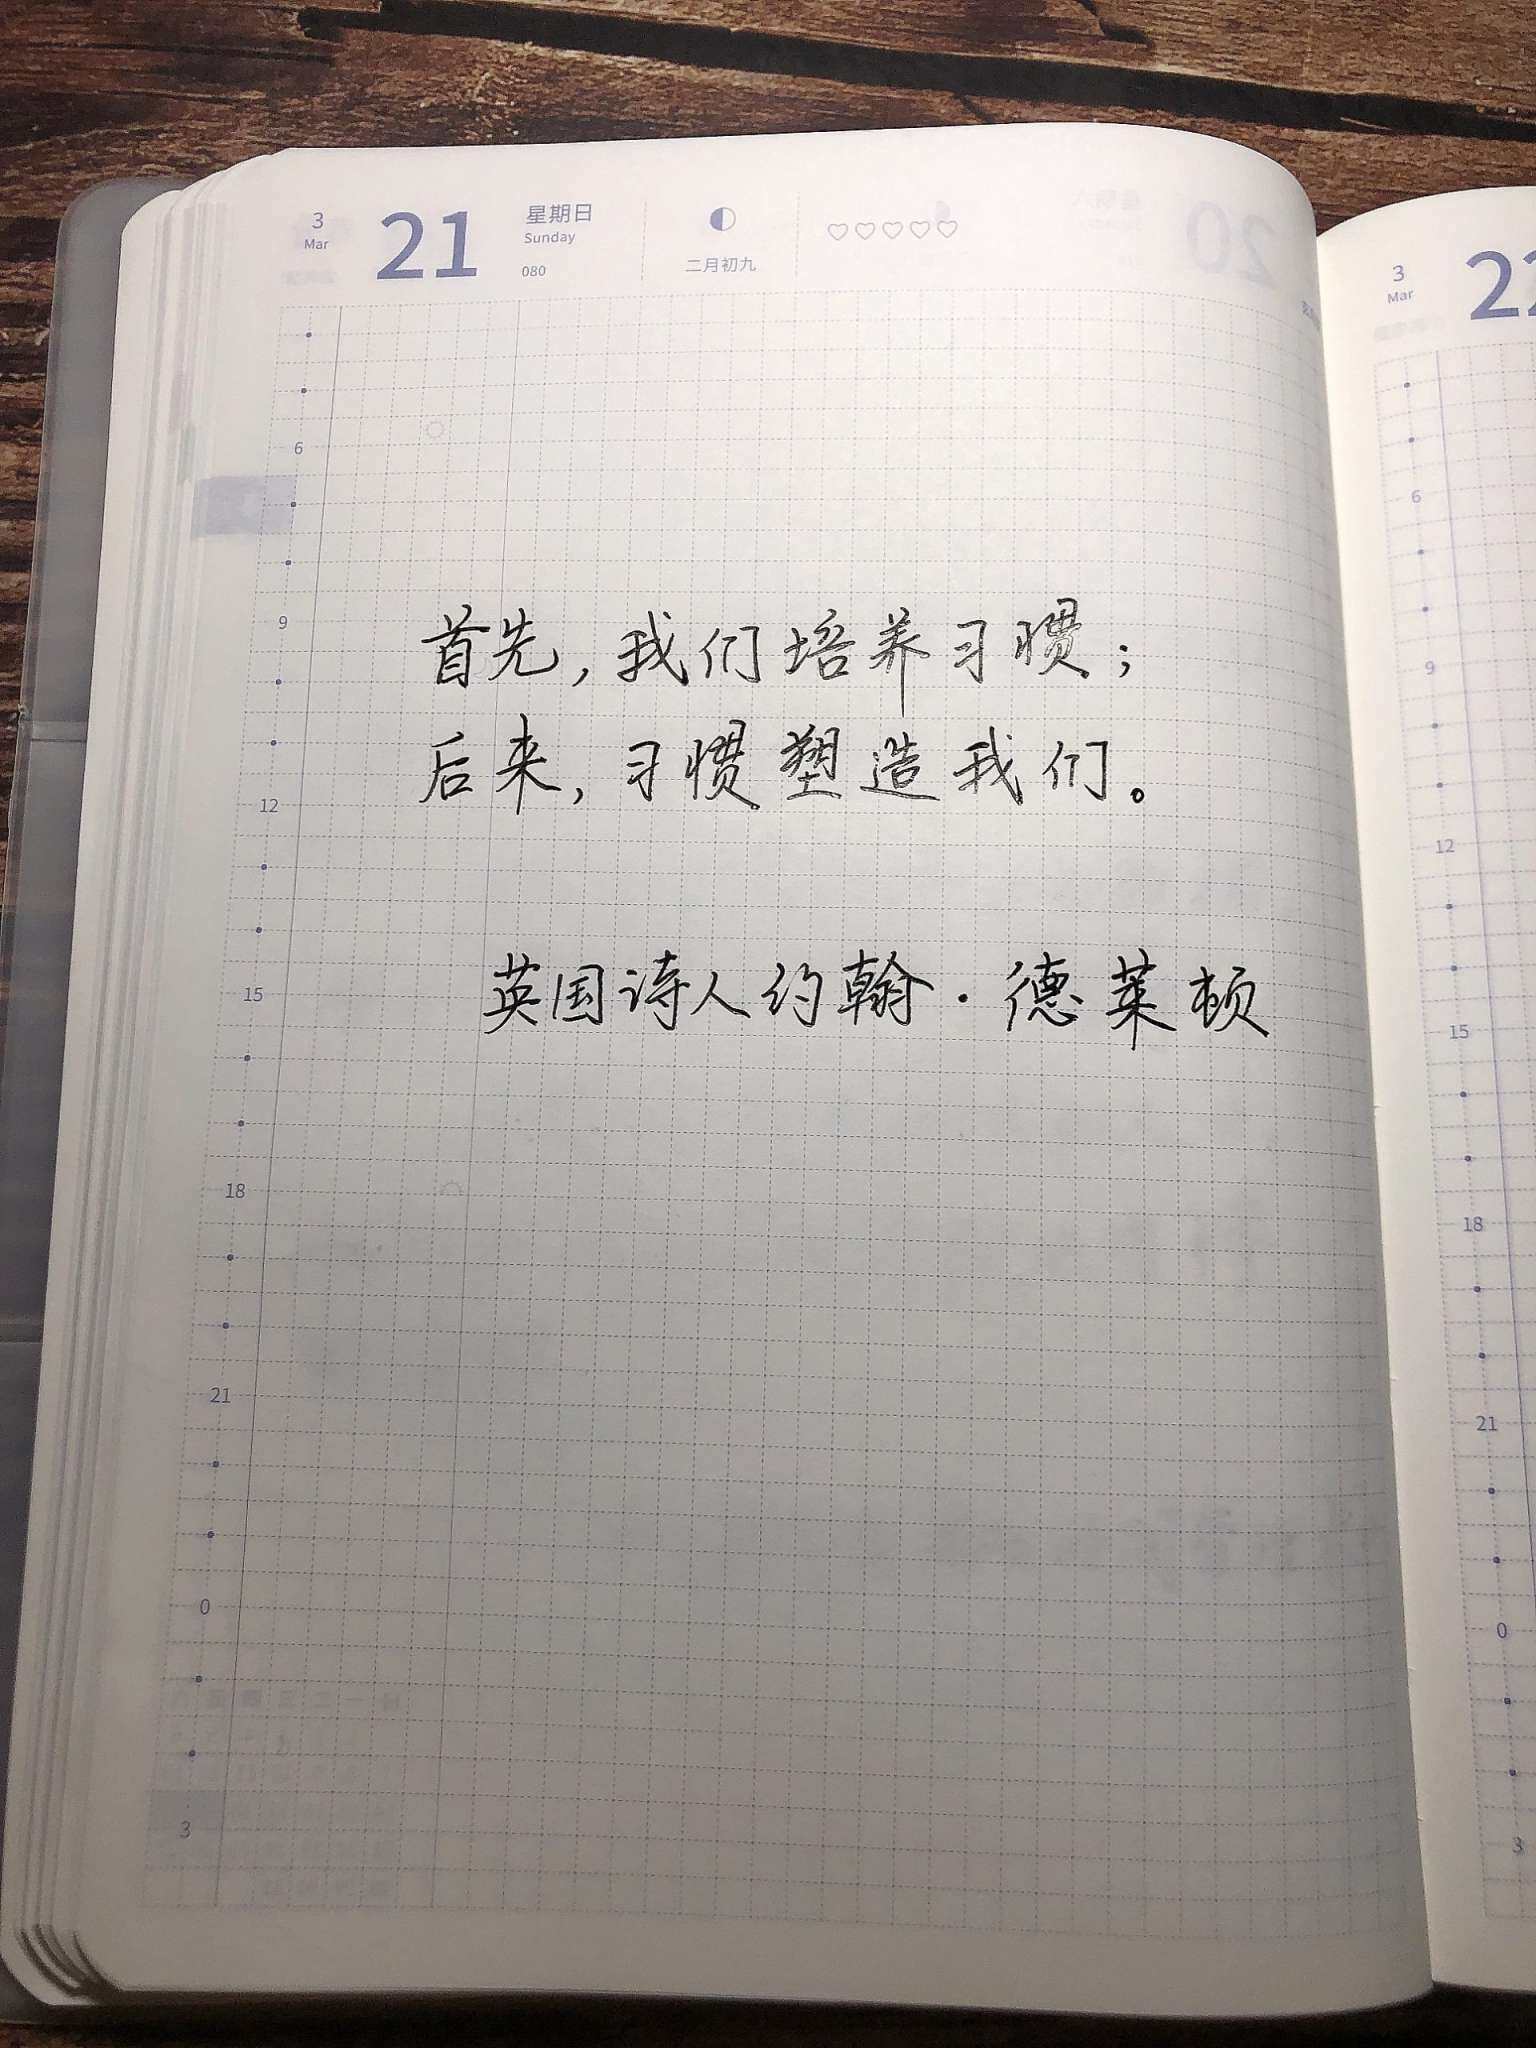 3
Mar
21
星期日
Sunday
080
二月初九
首先，我们培养习惯；
后来，习惯塑造我们。
英国诗人约翰·德莱顿
6
9
12
15
18
21
0
3
3
Mar
22
6
9
12
15
18
21
0
3